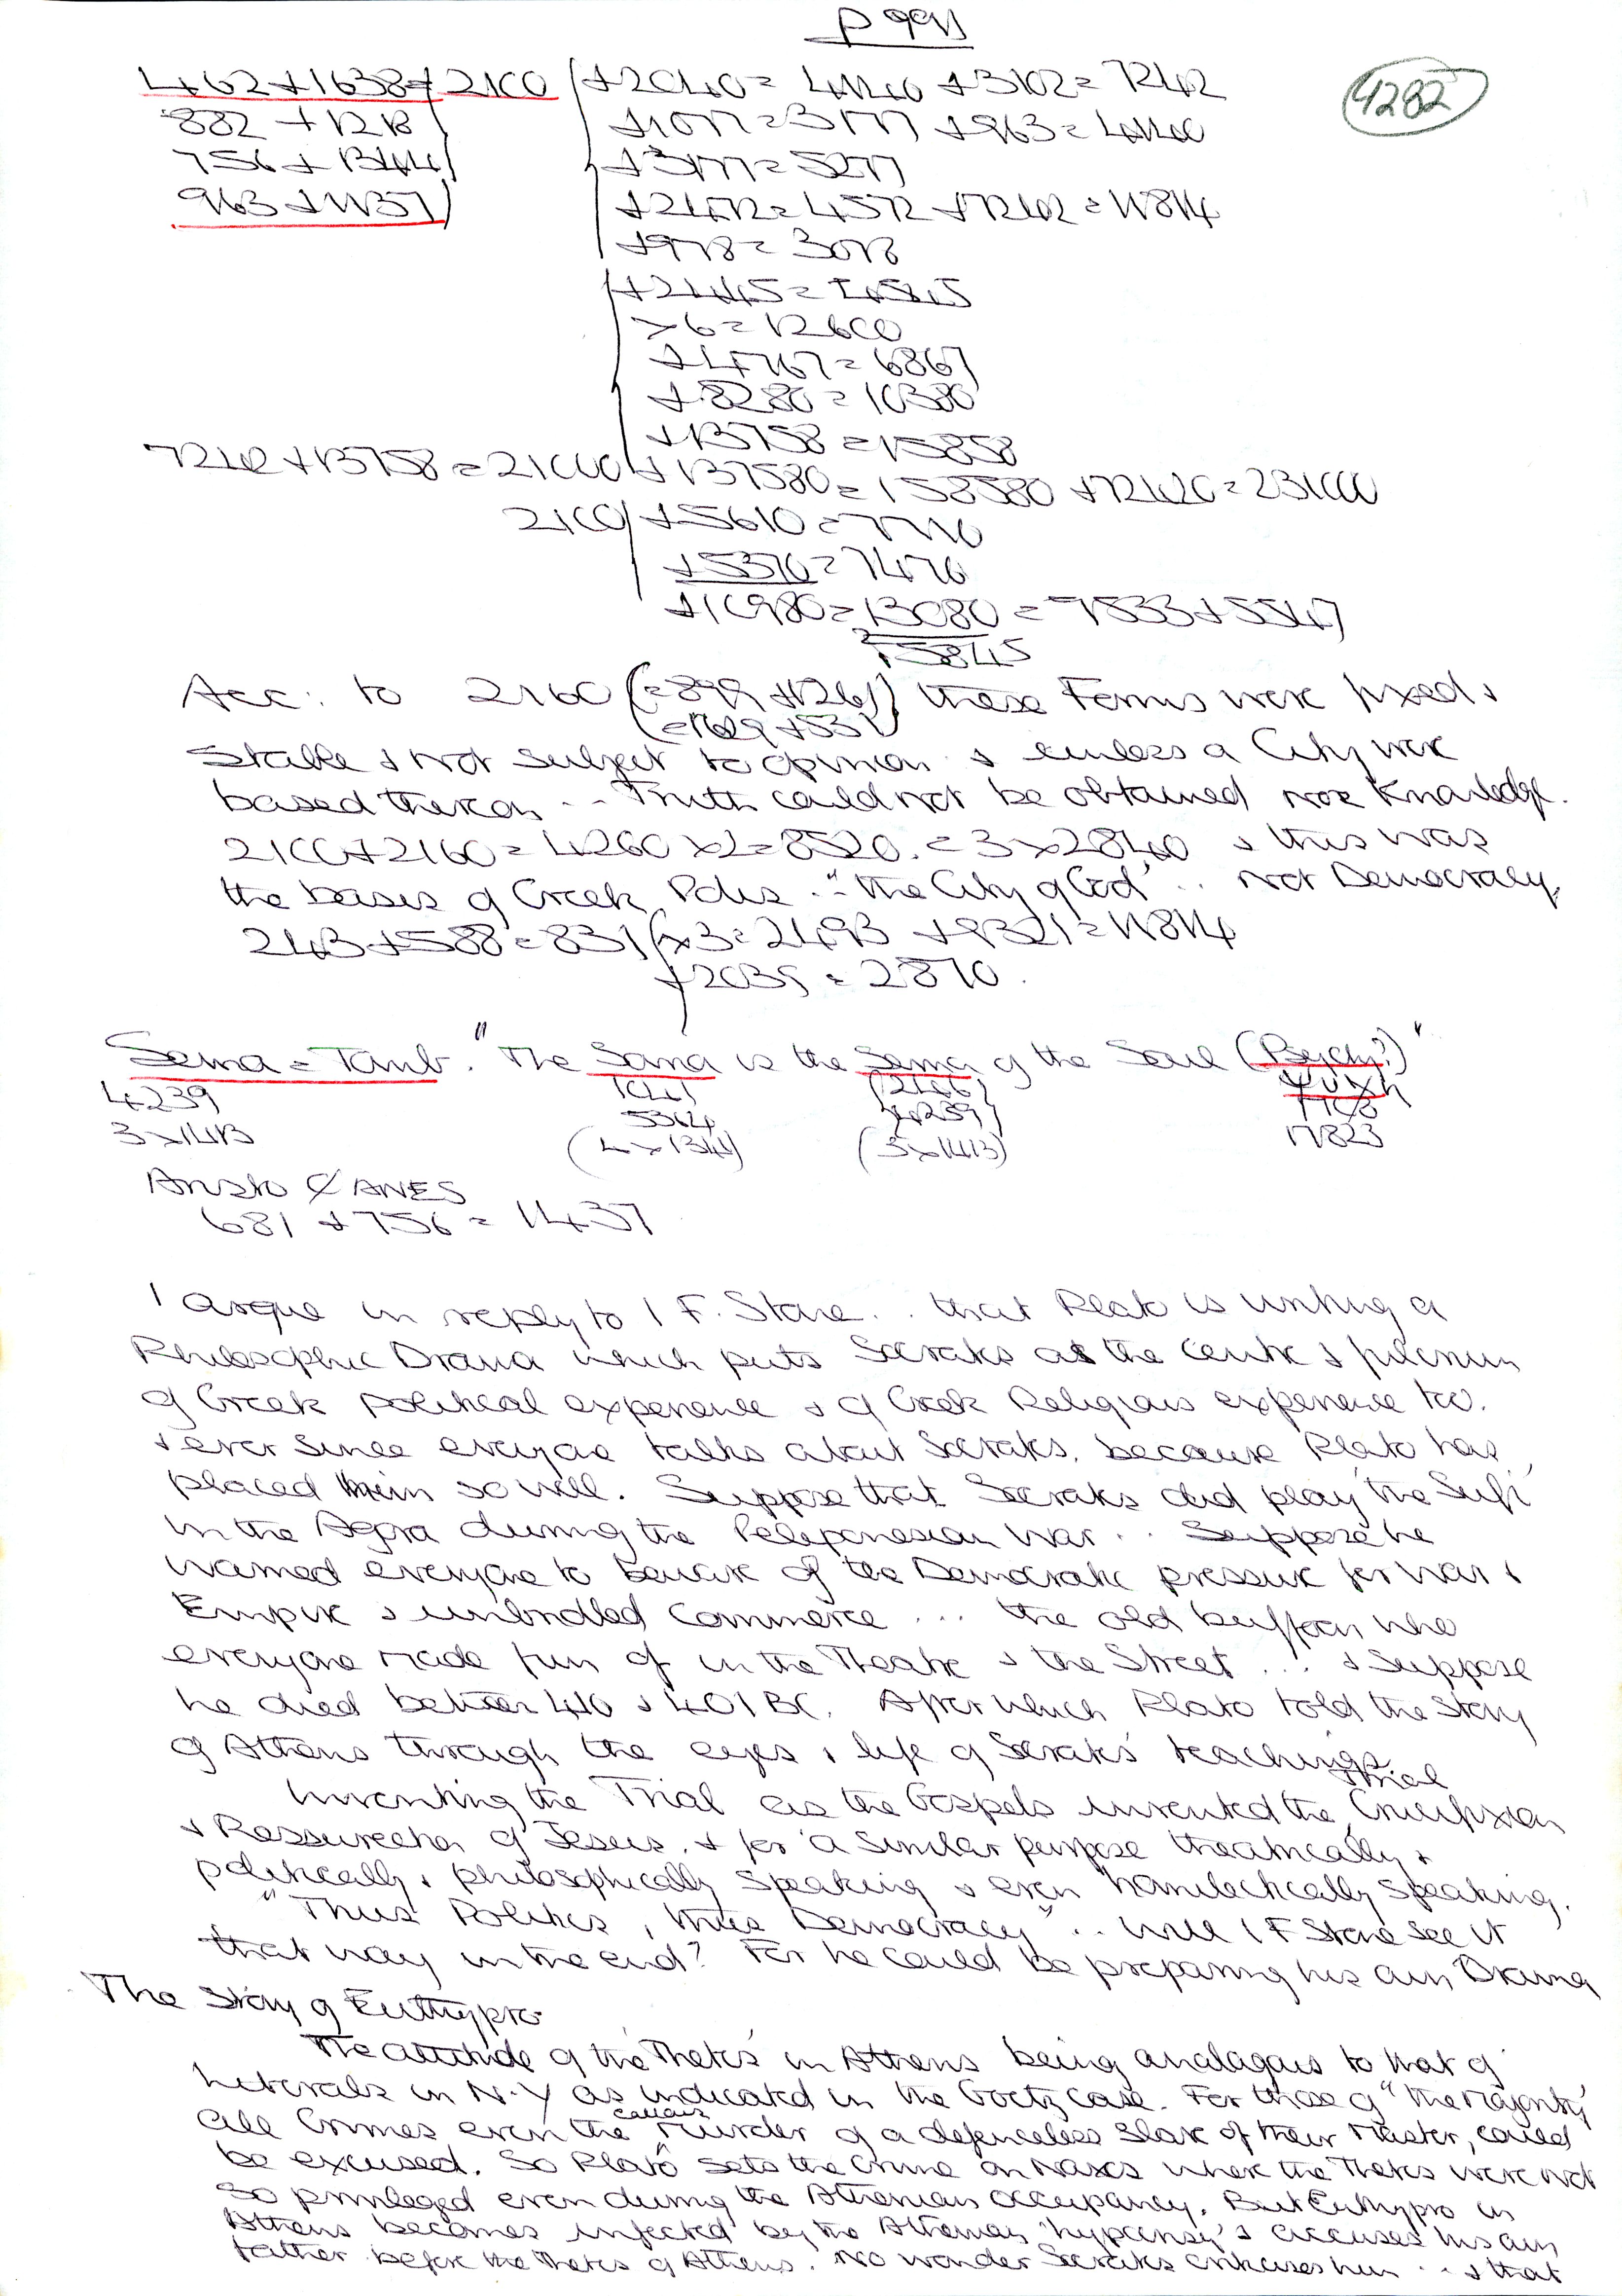 P 991
4282
462 + 1638 = 2100 + 2040 = 4140 + 3102 = 7242
882 + 1218 + 1077 = 3177 + 963 = 4140
756 + 1344 + 3177 = 5277
963 + 1137 + 2472 = 4572 + 7242 = 11814
+ 978 = 3078
+ 2445 = 4545
× 6 = 12600
+ 4767 = 6867
+ 8280 = 10380
+ 13758 = 15858
7242 + 13758 = 21000 + 137580 = 158580 + 72420 = 231000
2100 + 5610 = 7710
+ 5376 = 7476
+ 10980 = 13080 = 7533 + 5547
Acc: to 2160 (= 899 + 1261) these Forms were fixed &
(= 1629 + 531)
Stable & not subject to opinion & unless a City were
based thereon .. Truth could not be obtained nor Knowledge.
2100 + 2160 = 4260 × 2 = 8520. = 3 × 2840 & this was
the basis of Greek Polis. "the City of God" .. not Democracy.
243 + 588 = 831 × 3 = 2493 + 9321 = 11814
+ 2039 = 2870.
Sema = Tomb. "The Soma is the Sema of the Soul (Psyche?)"
4239 1041 (246) ψυχη
3 × 1413 5364 4239 1708
(4 × 1341) (3 × 1413) 17823
Aristo φANES
681 + 756 = 1437
I argue in reply to I F. Stone .. that Plato is writing a
Philosophic Drama which puts Socrates as the centre & fulcrum
of Greek political experience & of Greek Religious experience too.
& ever since everyone talks about Socrates, because Plato has
placed him so well. Suppose that Socrates did play the Sufi
in the Agora during the Peleponesian War .. Suppose he
warned everyone to beware of the Democratic pressure for War &
Empire & unbridled Commerce ... the old buffoon who
everyone made fun of in the Theatre & the Street ... & suppose
he died between 410 & 401 BC. After which Plato told the Story
of Athens through the eyes & life of Socrates' teachings
Inventing the Trial as the Gospels invented the Trial Crucifixion
& Ressurection of Jesus, & for a similar purpose theatrically &
politically & philosophically speaking & even homilectically speaking.
"Thus Politics, thus Democracy" .. will I F Stone see it
that way in the end? For he could be preparing his own Drama
The Story of Euthypro
The attitude of the 'Thetes' in Athens being analagous to that of
Liberals in N.Y as indicated in the Goetz case. For those of "the Majority"
all Crimes even the callous Murder of a defenceless Slave of their Master, could
be excused. So Plato sets the Crime on Naxos where the Thetes were not
so privileged even during the Athenian occupancy. But Euthypro in
Athens becomes infected by the Athenian 'hypocrisy' & accuses his own
father before the Thetes of Athens. No wonder Socrates criticises him .. & that